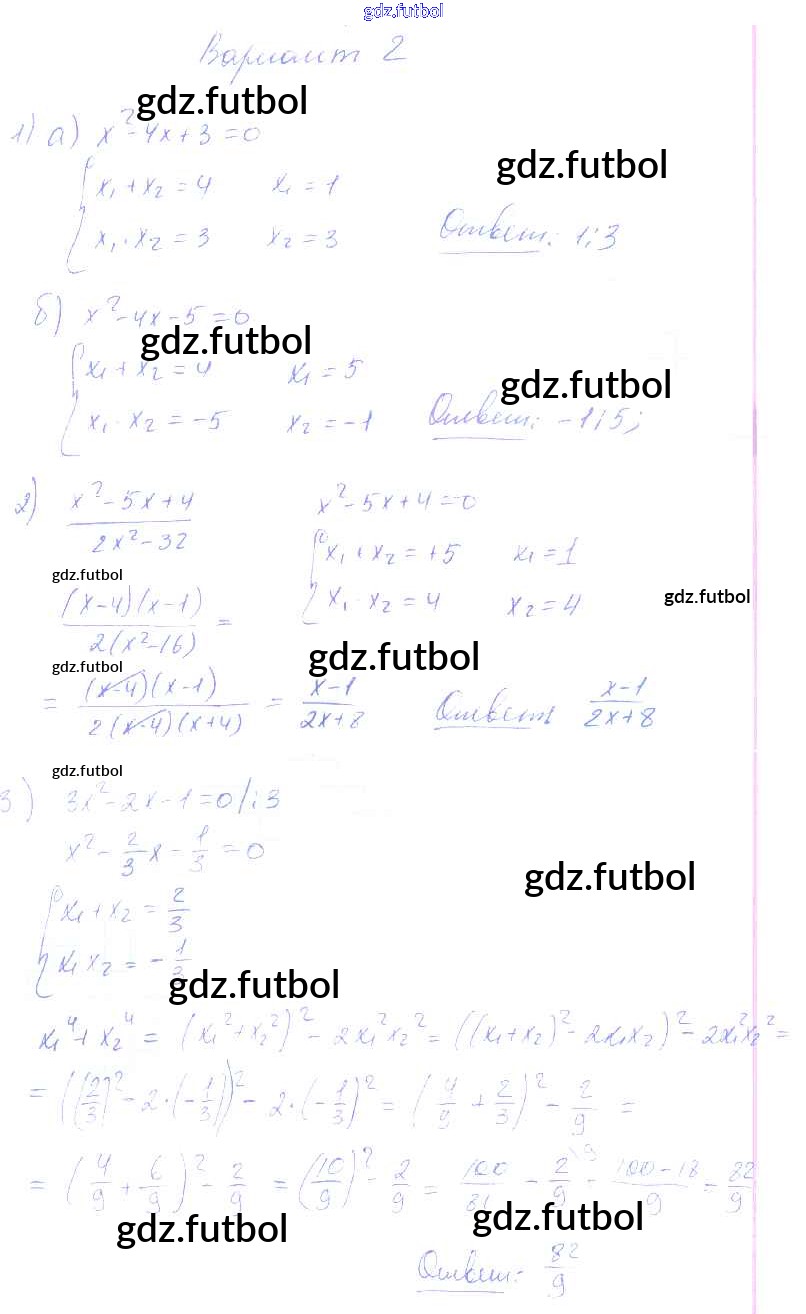 gdz.futbol
Вариант 2
gdz.futbol
1) а) x² - 4x + 3 = 0
gdz.futbol
x₁ + x₂ = 4 x₁ = 1
x₁ · x₂ = 3 x₂ = 3 Ответ: 1; 3
б) x² - 4x - 5 = 0
gdz.futbol
x₁ + x₂ = 4 x₁ = 5
gdz.futbol
x₁ · x₂ = -5 x₂ = -1 Ответ: -1; 5;
2) (x² - 5x + 4)/(2x² - 32) x² - 5x + 4 = 0
x₁ + x₂ = +5 x₁ = 1
gdz.futbol
x₁ · x₂ = 4 x₂ = 4
gdz.futbol
((x-4)(x-1))/(2(x²-16)) =
gdz.futbol
gdz.futbol
= ((x-4)(x-1))/(2(x-4)(x+4)) = (x-1)/(2x+8) Ответ (x-1)/(2x+8)
gdz.futbol
3) 3x² - 2x - 1 = 0 /:3
x² - 2/3 x - 1/3 = 0
gdz.futbol
x₁ + x₂ = 2/3
x₁ x₂ = - 1/3
gdz.futbol
x₁⁴ + x₂⁴ = (x₁² + x₂²)² - 2x₁²x₂² = ((x₁+x₂)² - 2x₁x₂)² - 2x₁²x₂² =
= ((2/3)² - 2·(-1/3))² - 2·(-1/3)² = (4/9 + 2/3)² - 2/9 =
= (4/9 + 6/9)² - 2/9 = (10/9)² - 2/9 = 100/81 - 2/9 \9 = (100-18)/9 = 82/9
gdz.futbol
gdz.futbol
Ответ: 82/9